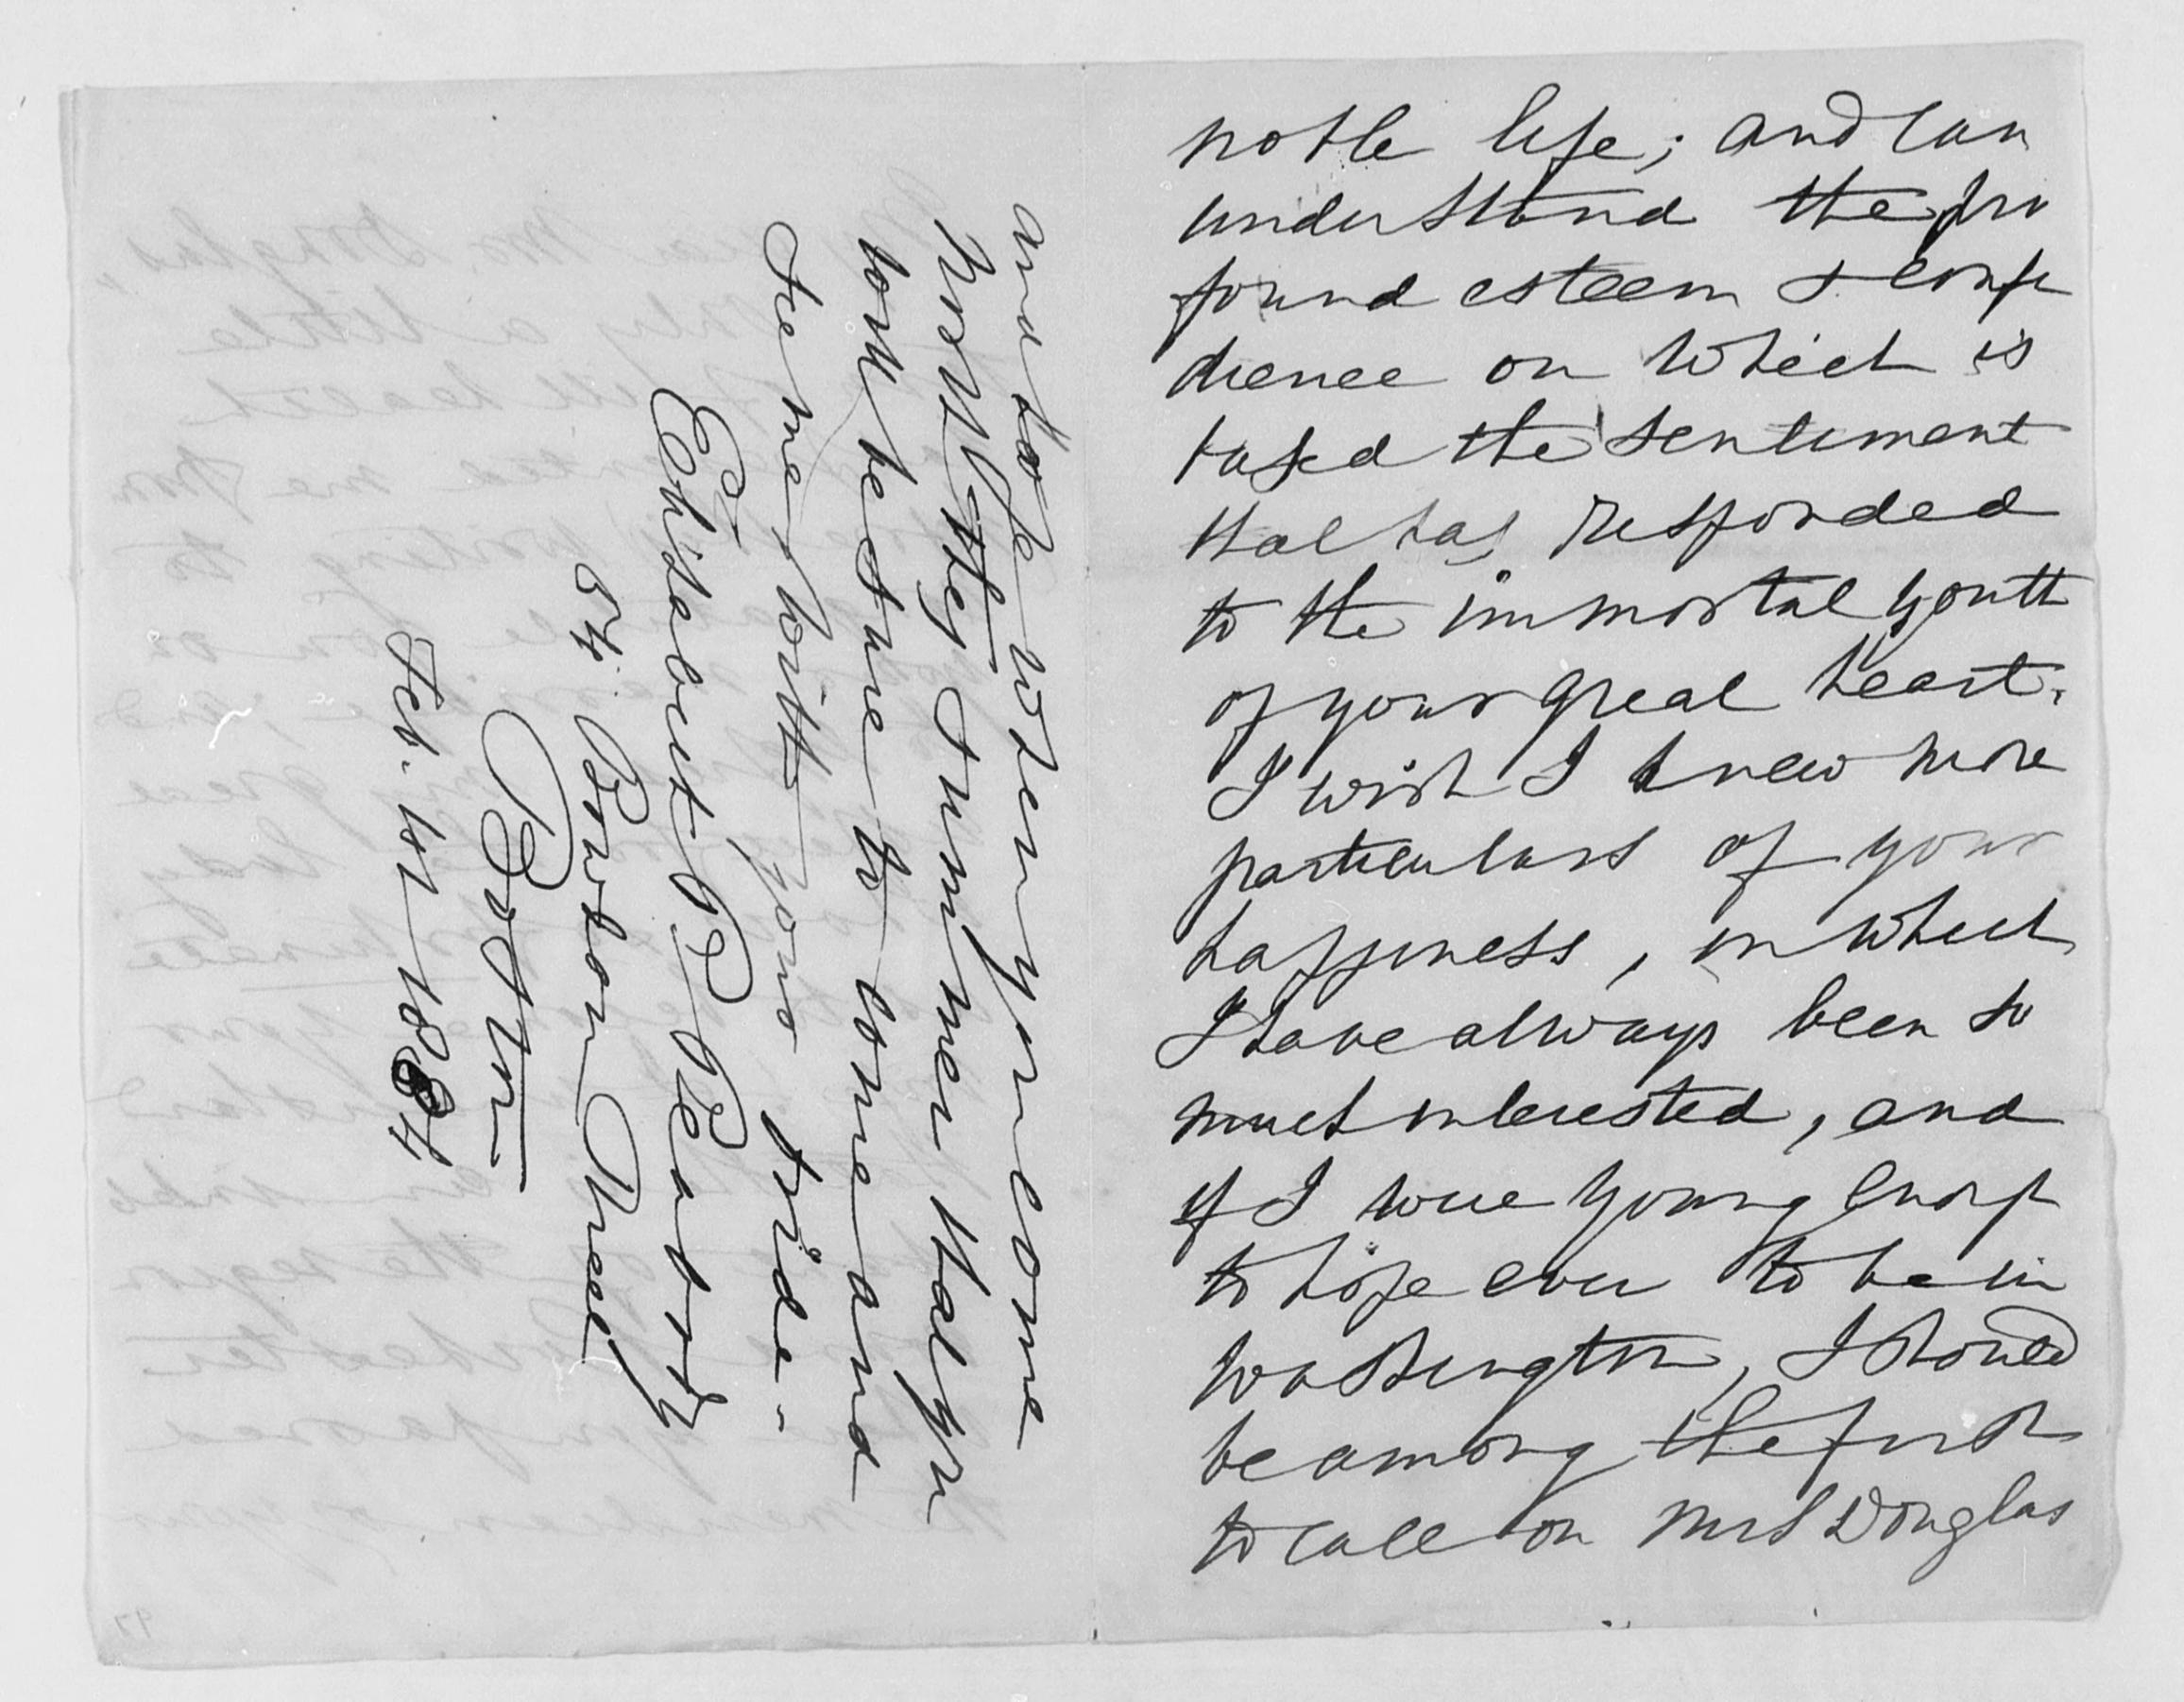 noble life; and can
understand the pro
found esteem & confi
dence on which is
based the sentiment
that has responded
to the immortal youth
of your great heart.
I wish I knew more
particulars of your
happiness, in which
I have always been so
much interested, and
if I were young enough
to hope ever to be in
Washington, I should
be among the first
to call on Mrs Douglas
and hope when you come
North the summer that you
will let me to come and
see me with your bride.
Elizabeth P Peabody
54. Bowdoin Street
Boston
Feb. 1st 1884